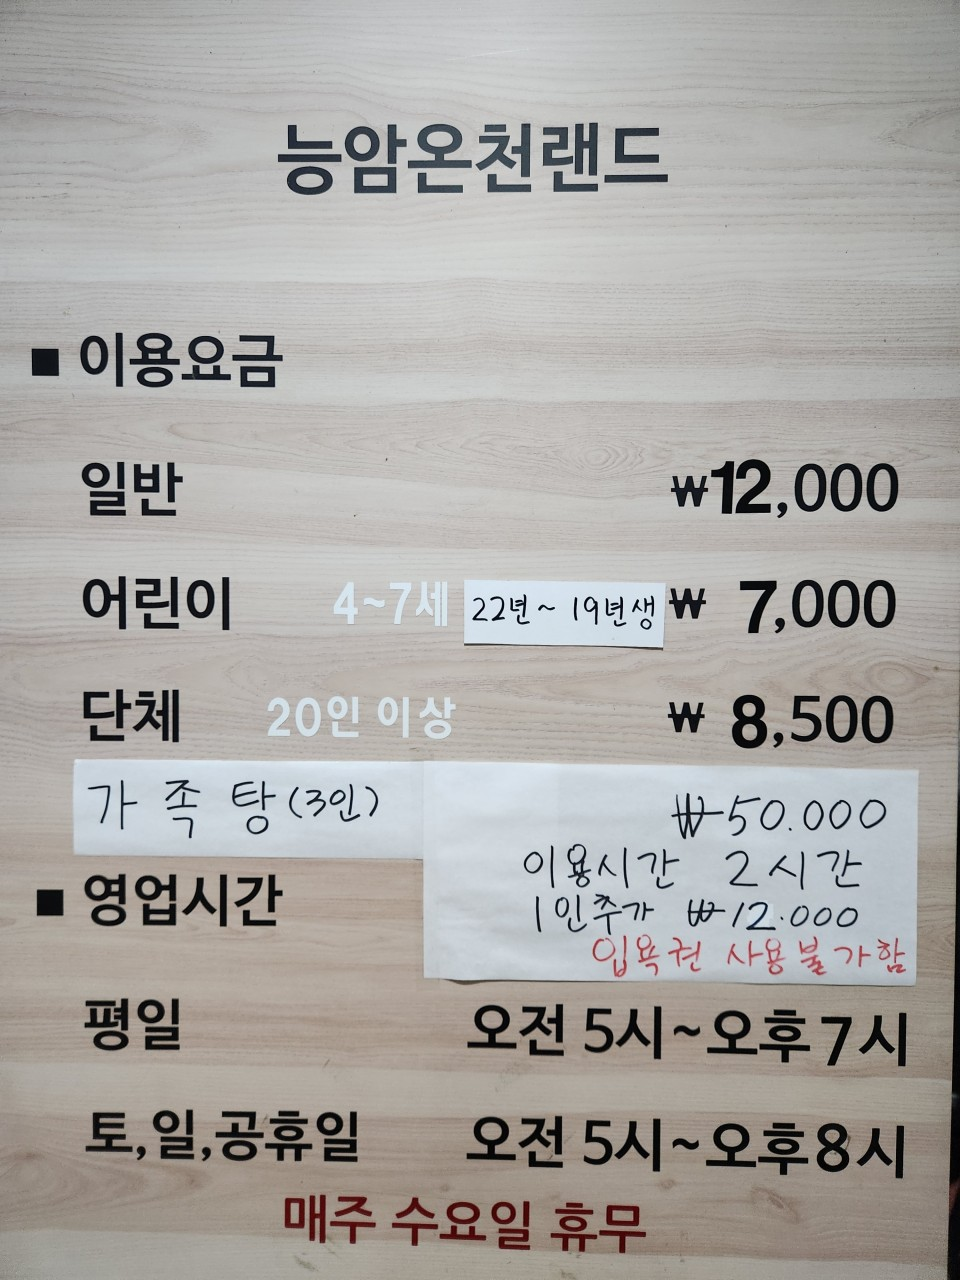 능암온천랜드
■ 이용요금
일반 ₩12,000
어린이 4~7세 22년~19년생 ₩ 7,000
단체 20인 이상 ₩ 8,500
가족탕(3인) ₩50.000
이용시간 2시간
1인추가 ₩12.000
입욕권 사용불가함
■ 영업시간
평일 오전 5시~오후7시
토,일,공휴일 오전 5시~오후8시
매주 수요일 휴무